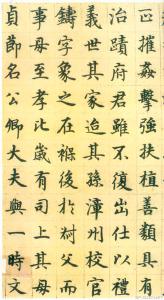 正摧姦擊強扶植善類具有
治蹟府君雖不復出仕以禮
義世其家其孫漳州校官
鑄字象之在褓後於叔父而
事母至孝比歲有司上其母
貞節名公卿大夫與一時文